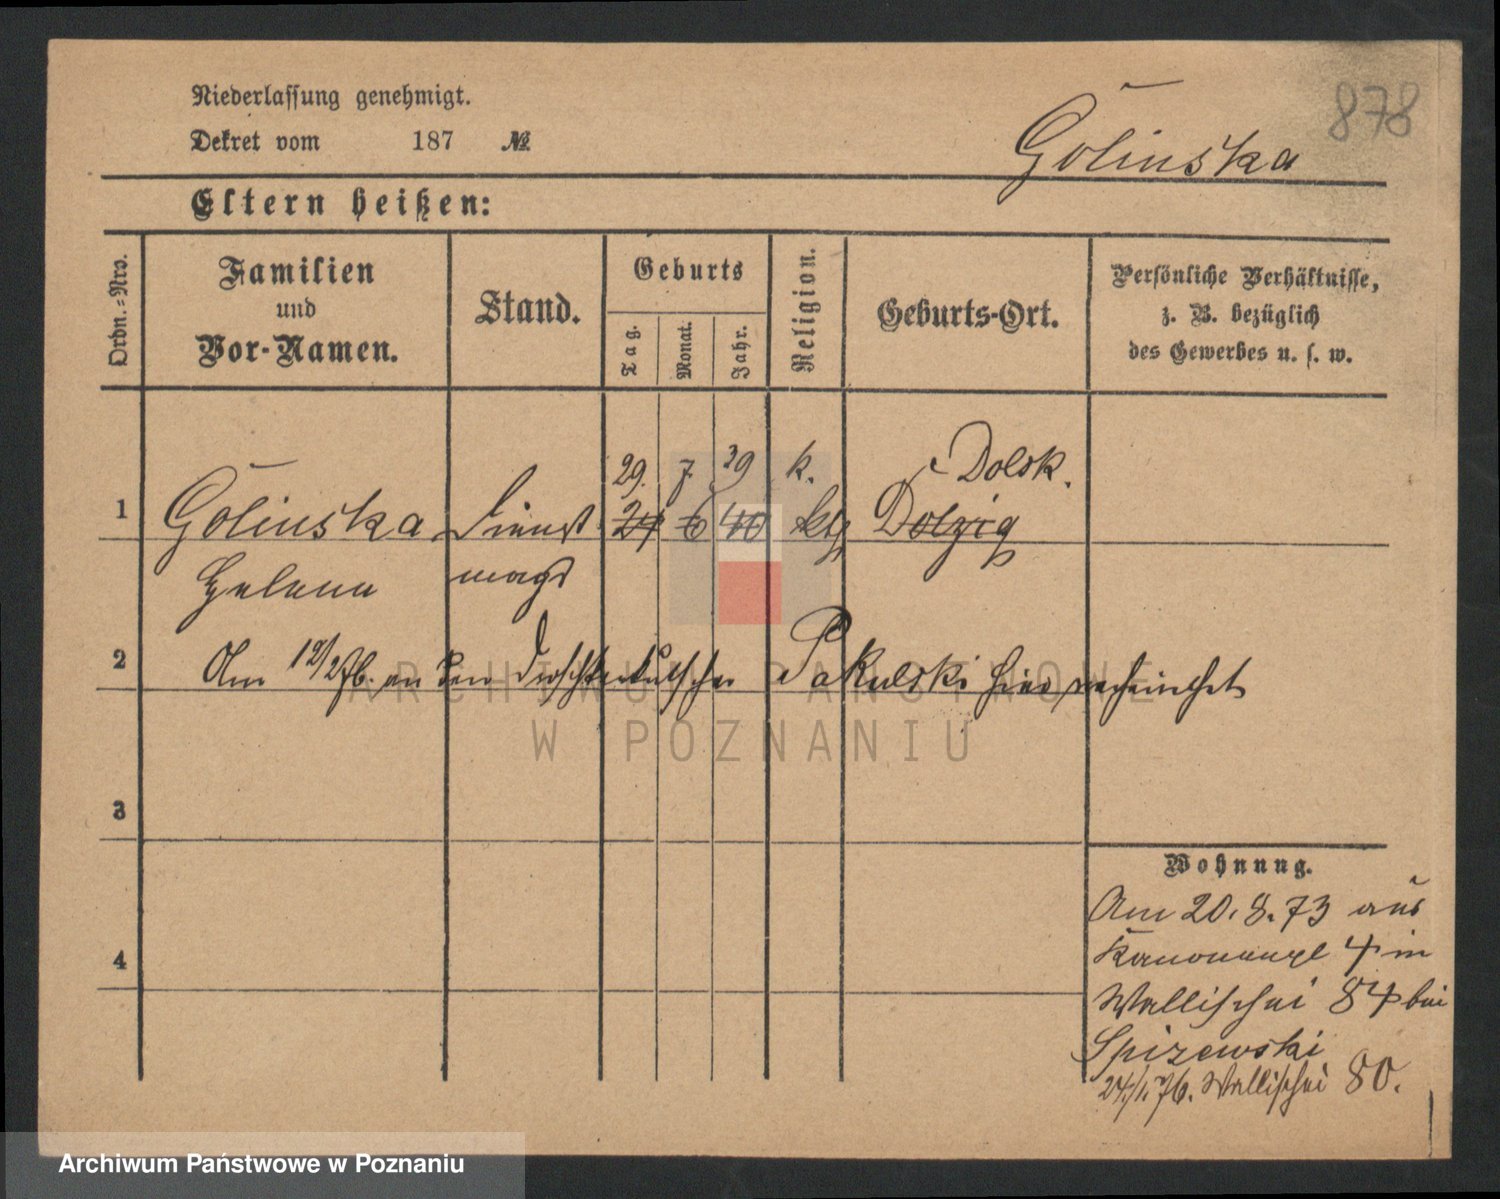 Niederlassung genehmigt.
Dekret vom 187 №
878
Golinska
Eltern heißen:
Ordn.=Nro.
Familien
und
Vor-Namen.
Stand.
Geburts
Tag.
Monat.
Jahr.
Religion.
Geburts-Ort.
Persönliche Verhältnisse,
z. B. bezüglich
des Gewerbes u. s. w.
29. 7. 39 k. Dolsk.
1 Golinska Dienst 24 6 40 kth Dolzig
Helena magd
2 Am 12/2 76. an den Droschkenkutscher Pakulski hier verheirathet
3
4
Wohnung.
Am 20. 8. 73 aus
Kanonenpl 4 in
Wallischei 84 bei
Spizewski
24/1. 76. Wallischei 80.
ARCHIWUM PAŃSTWOWE
W POZNANIU
Archiwum Państwowe w Poznaniu